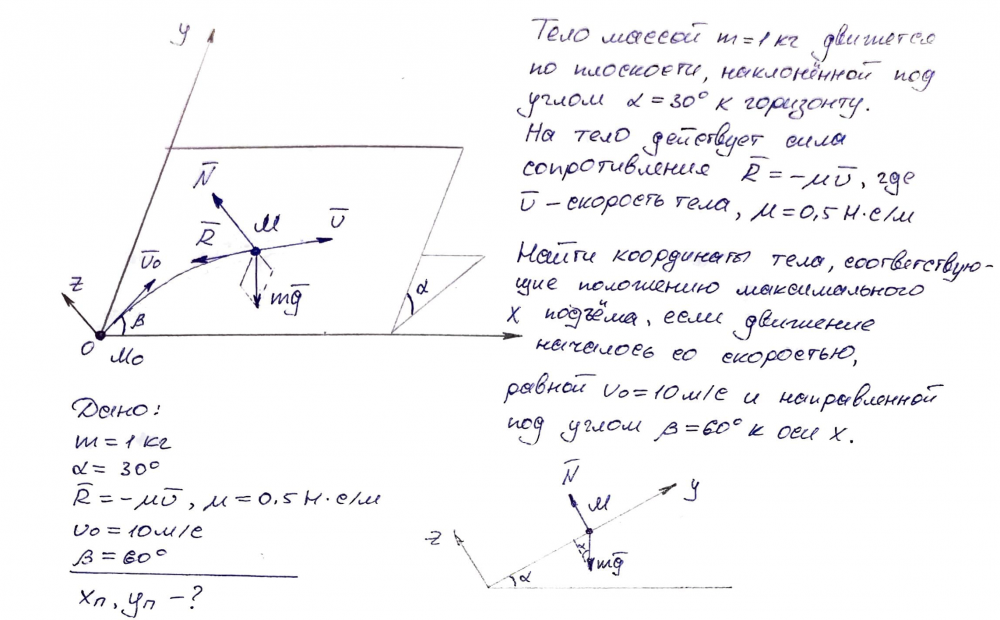 Тело массой m=1 кг движется
по плоскости, наклонённой под
углом α=30° к горизонту.
На тело действует сила
сопротивления R̅ = -μv̅, где
v̅ - скорость тела, μ=0,5 Н·с/м
Найти координаты тела, соответствую-
щие положению максимального
подъёма, если движение
началось со скоростью,
равной v₀=10 м/с и направленной
под углом β=60° к оси x.
y
N̅
M
v̅
R̅
v̅₀
z
mg̅
α
β
x
O M₀
Дано:
m=1 кг
α= 30°
R̅ = -μv̅, μ=0,5 Н·с/м
v₀=10 м/с
β=60°
xₙ, yₙ -?
N̅
M
y
z
α
mg̅
α